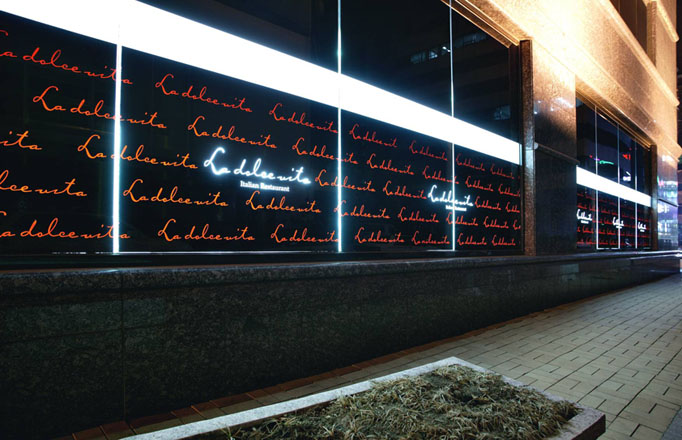 La dolce vita La dolce vita La dolce vita La dolce vita La dolce vita
La dolce vita La dolce vita La dolce vita La dolce vita La dolce vita
La dolce vita La dolce vita La dolce vita La dolce vita
La dolce vita
Italian Restaurant
La dolce vita
La dolce vita La dolce vita La dolce vita La dolce vita La dolce vita
La dolce vita La dolce vita La dolce vita La dolce vita La dolce vita